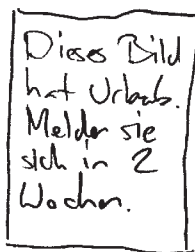 Dieses Bild
hat Urlaub.
Melden sie
sich in 2
Wochen.